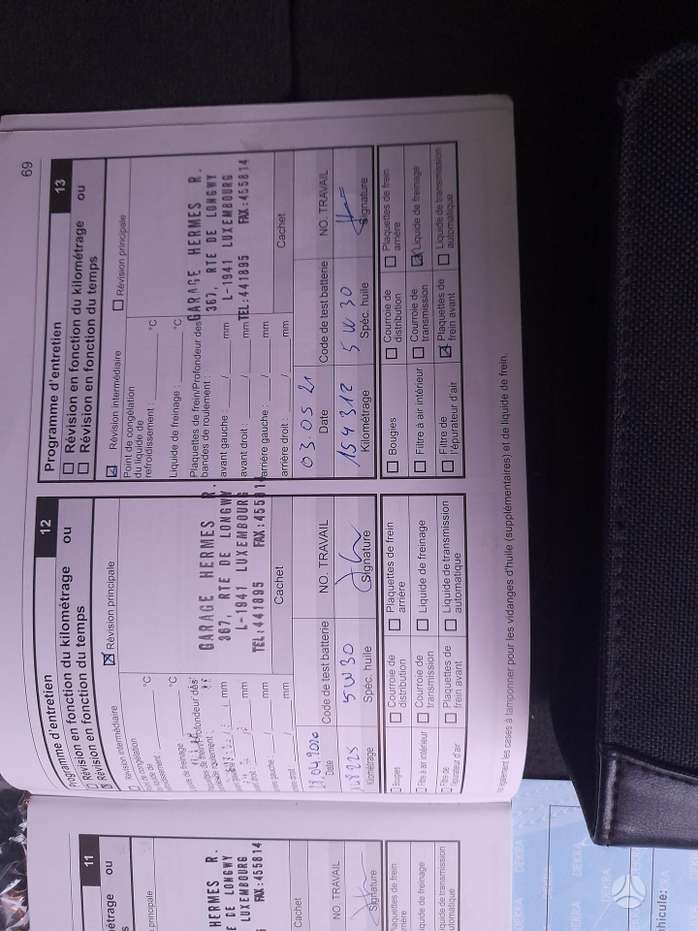 69
Programme d'entretien 12
Révision en fonction du kilométrage ou
Révision en fonction du temps
Révision intermédiaire
Révision principale
°C
°C
mm
mm
mm
mm
GARAGE HERMES R.
367, RTE DE LONGWY
L-1941 LUXEMBOURG
TEL:441895
Cachet
Date
Code de test batterie
NO. TRAVAIL
5W30
Kilométrage
Spéc. huile
Signature
Bougies
Courroie de distribution
Plaquettes de frein arrière
Filtre à air intérieur
Courroie de transmission
Liquide de freinage
Filtre de l'épurateur d'air
Plaquettes de frein avant
Liquide de transmission automatique
Programme d'entretien 13
Révision en fonction du kilométrage ou
Révision en fonction du temps
Révision intermédiaire
Révision principale
Point de congélation
du liquide de
refroidissement : °C
Liquide de freinage : °C
Plaquettes de frein/Profondeur des
bandes de roulement :
avant gauche : / mm
avant droit : / mm
arrière gauche : / mm
arrière droit : / mm
GARAGE HERMES R.
367, RTE DE LONGWY
L-1941 LUXEMBOURG
TEL:441895 FAX:455814
Cachet
03.05 21
Date
Code de test batterie
NO. TRAVAIL
154312
5W30
Kilométrage
Spéc. huile
Signature
Bougies
Courroie de distribution
Plaquettes de frein arrière
Filtre à air intérieur
Courroie de transmission
Liquide de freinage
Filtre de l'épurateur d'air
Plaquettes de frein avant
Liquide de transmission automatique
les cases à tamponner pour les vidanges d'huile (supplémentaires) et de liquide de frein.
11
ou
principale
HERMES R.
DE LONGWY
LUXEMBOURG
FAX:455814
Cachet
NO. TRAVAIL
Signature
DEKRA